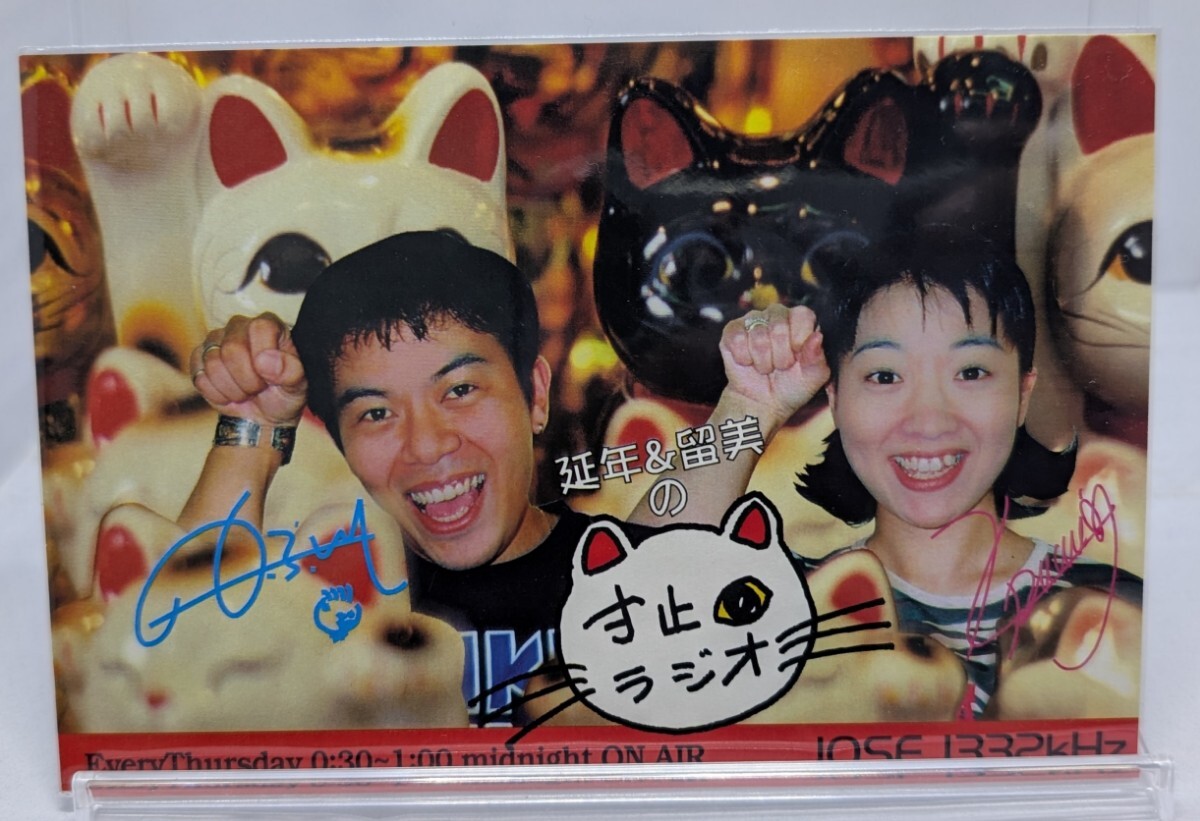 延年&留美
の
寸止
ラジオ
EveryThursday 0:30~1:00 midnight ON AIR
JOSF 1332kHz